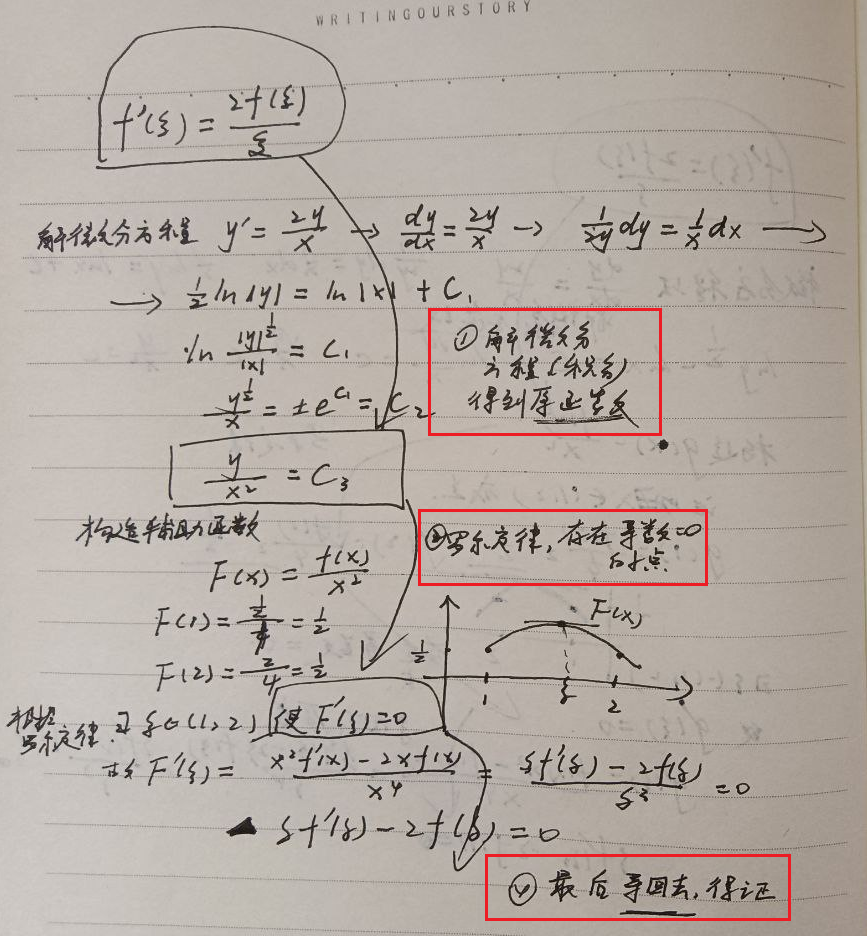 WRITINGOURSTORY
f'(ξ) = 2f(ξ)/ξ
解微分方程 y' = 2y/x → dy/dx = 2y/x → 1/2y dy = 1/x dx →
→ 1/2 ln|y| = ln|x| + C₁
ln |y|^(1/2)/|x| = C₁
y^(1/2)/x = ±e^(C₁) = C₂
① 解微分
方程(积分)
得到原函数
y/x² = C₃
构造辅助函数
② 罗尔定律, 存在导数=0
的点
F(x) = f(x)/x²
F(1) = 1/2 = 1/2
F(2) = 2/4 = 1/2
1/2
F(x)
1 ξ 2
根据
罗尔定律, ∃ ξ∈(1,2) 使 F'(ξ)=0
故 F'(ξ) = x²f'(x) - 2xf(x)/x⁴ = ξf'(ξ) - 2f(ξ)/ξ³ = 0
ξf'(ξ) - 2f(ξ) = 0
最后导回去, 得证